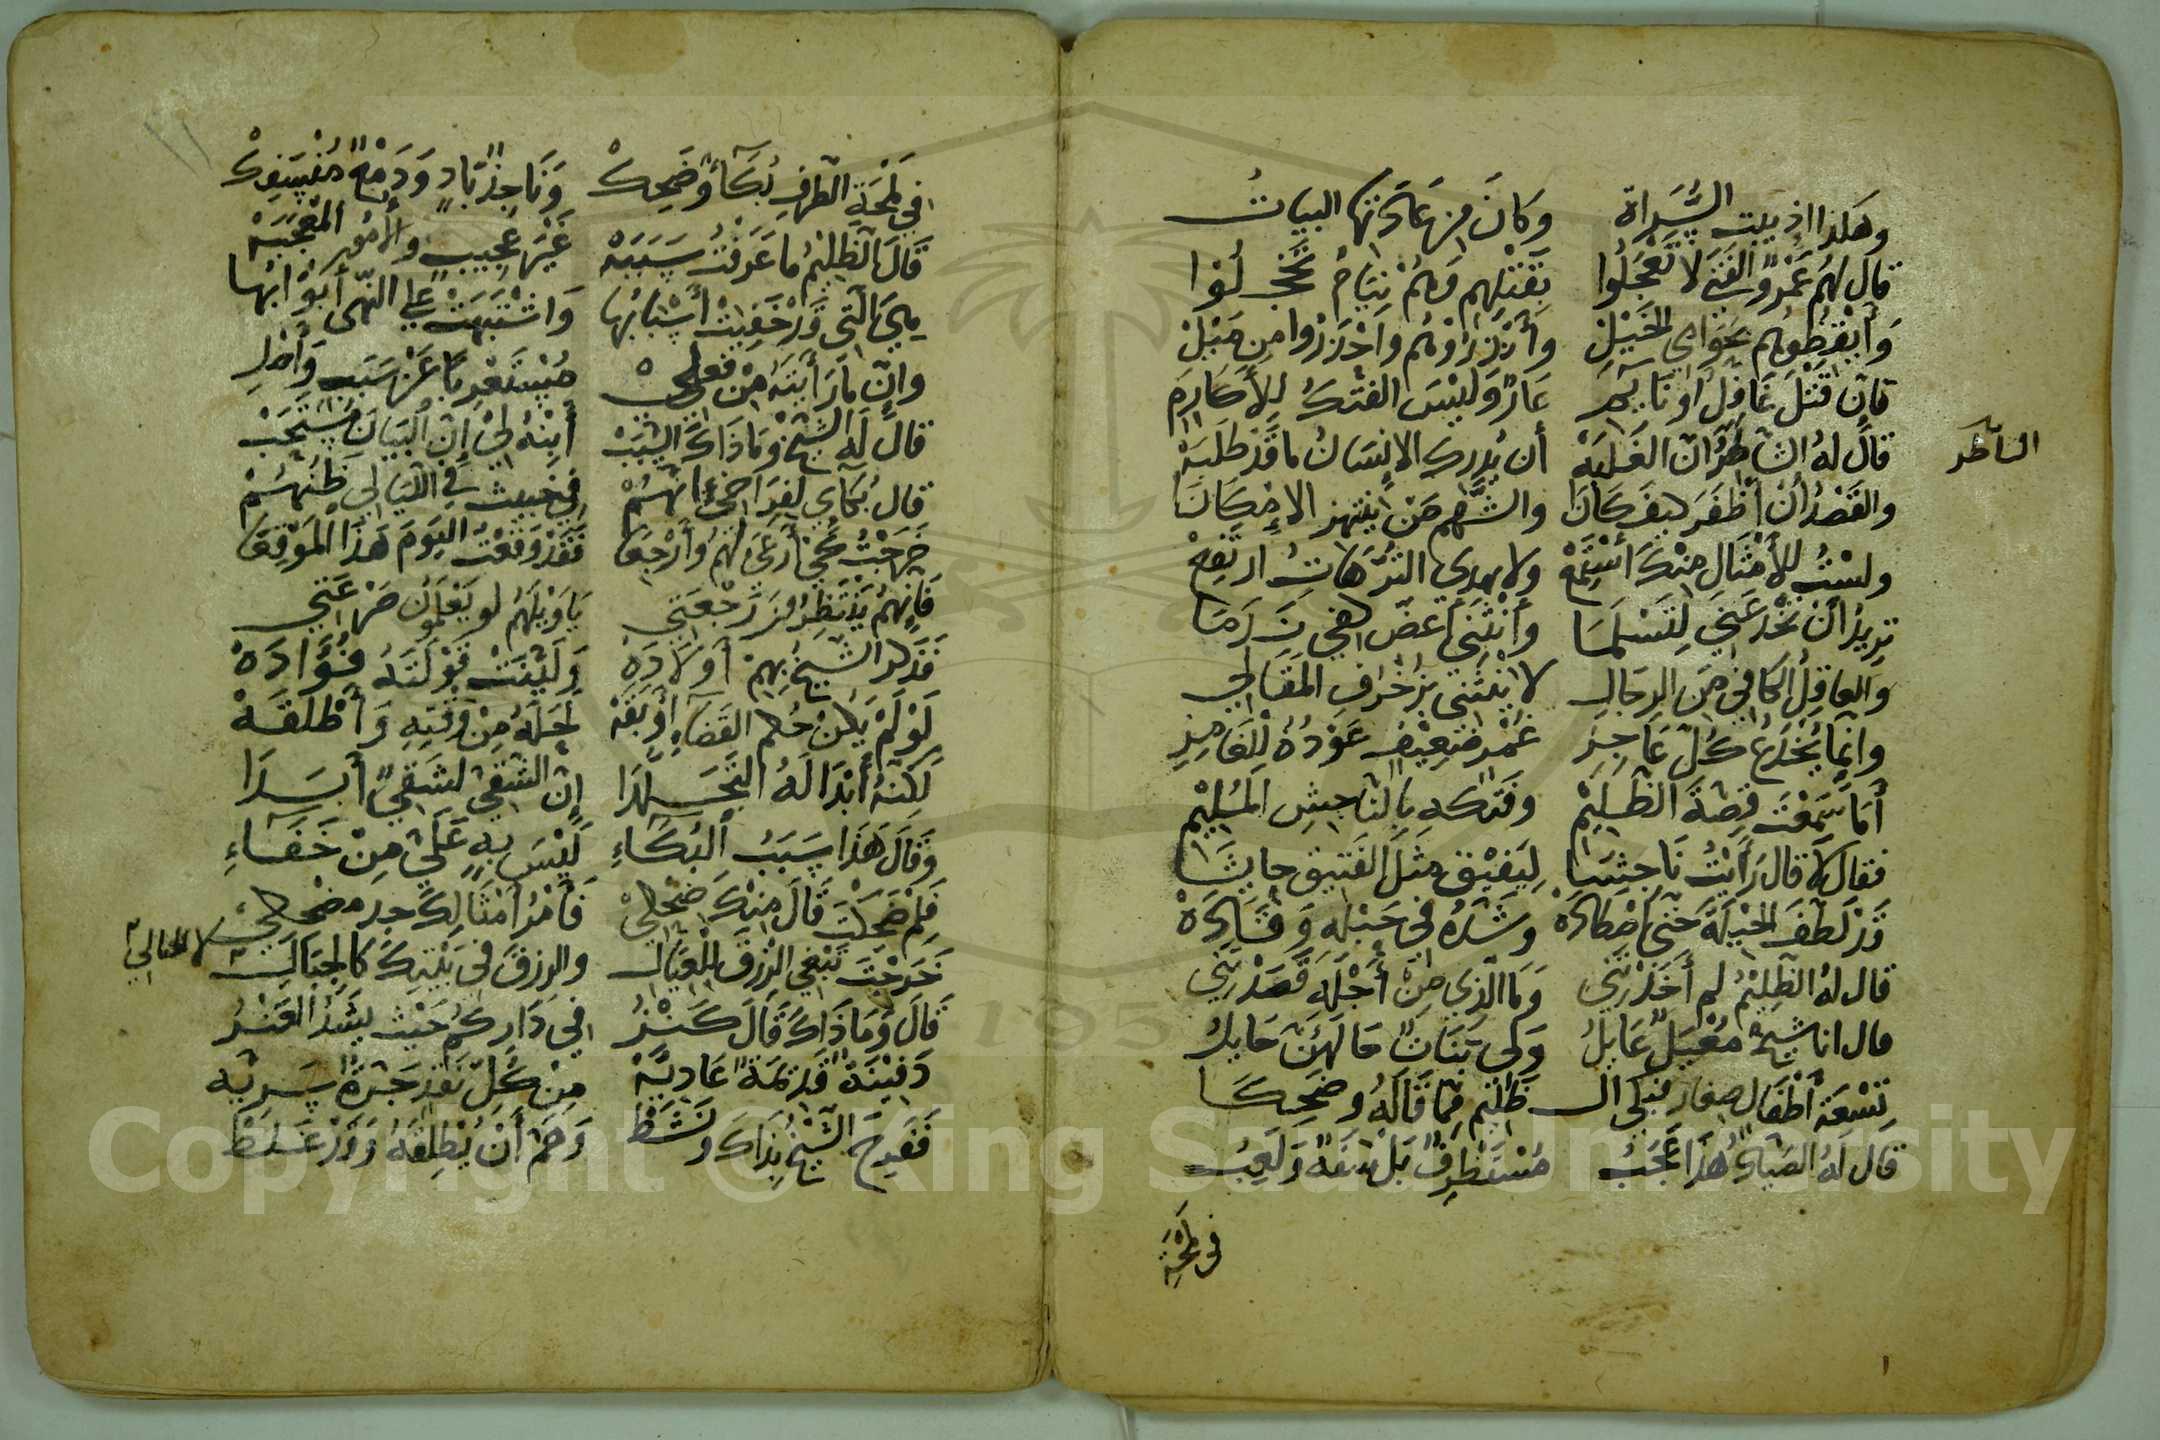 وهكذا اذ بيت السراة وكان من عاداتها البيات
قال لهم عمرو الفتى لا تعجلوا بقتلهم وهم نيام تخجلوا
وأيقظوهم بحوامي الخيل وأنذروهم واحذروا من ميل
فإن قتل غافل أو نايم عار وليس الفتك للأكارم
قال له الشاطر ان الغلبه أن يدرك الإنسان ما قد طلبه
الناظر
والقصد أن أظفر كيف كانا والشهم من ينتهز الإمكانا
ولست للأمثال منك أستمع ولا بهذي الترهات ارتفع
تريد أن تخدعني لتسلما وأنثني أعض كفي ندما
والعاقل الكافي من الرجال لا ينثني بزخرف المقال
وإنما يخدع كل عاجز غمر ضعيف عوده للغامز
أما سمعت قصة الظليم وفتكه بالناجش المليم
فقال لا قال رأيت ناجشا ليفيق مثل الفتيق حابشا
قد لطف الحيلة حتى اصطاده وشده في حبله وقاده
قال له الظليم لم أخذتني وما الذي من أجله قصدتني
قال انا شيخ معيل عايل ولي بنات ما لهن حايل
تسعة أطفال صغار فبكى ال ظليم مما قاله وضحكا
قال له الصياد هذا عجب مستطرف بل سفه ولعب
في لمحة
في لمحة الطرف بكا وضحك وناجذ باد ودمع منسفك
قال الظليم ما عرفت سببه غير عجيب والأمور المعجبه
هي التي قد خفيت أسبابها واشتبهت على النهى أبوابها
وإن ما رأيته من فعلي مستغربا عن سبب وأصل
قال له الشيخ وما ذاك السبب أبنه لي إن البيان يستحب
قال بكاي لفراخي إنهم في خبيت في الليالي ظنهم
خرجت كي أرعى لهم وأرجعا فقد وقعت اليوم هذا الموقعا
فإنهم ينتظرون رجعتي يا ويلهم لو يعلمون صرعتي
فذكر الشيخ بهم أولاده ولينت قولته فؤاده
لو لم يكن حكم القضاء أوبقه لحله من وقته وأطلقه
لكنه أبدا له التجلدا إن الشقي لشقي أبدا
وقال هذا سبب البكاء ليس به علي من خفاء
فلم ضحكت قال منك ضحكي فأمر أمثالك جد مضحك
خرجت تبغي الرزق للعيال والرزق في بيتك كالجبال
لا المحال
قال وما ذاك قال كنز في داركم حيث يشد العنز
دفينة قديمة عادية من كل نقد جدة سرية
ففرح الشيخ بذاك ونشط وهم أن يطلقه وقد غلط